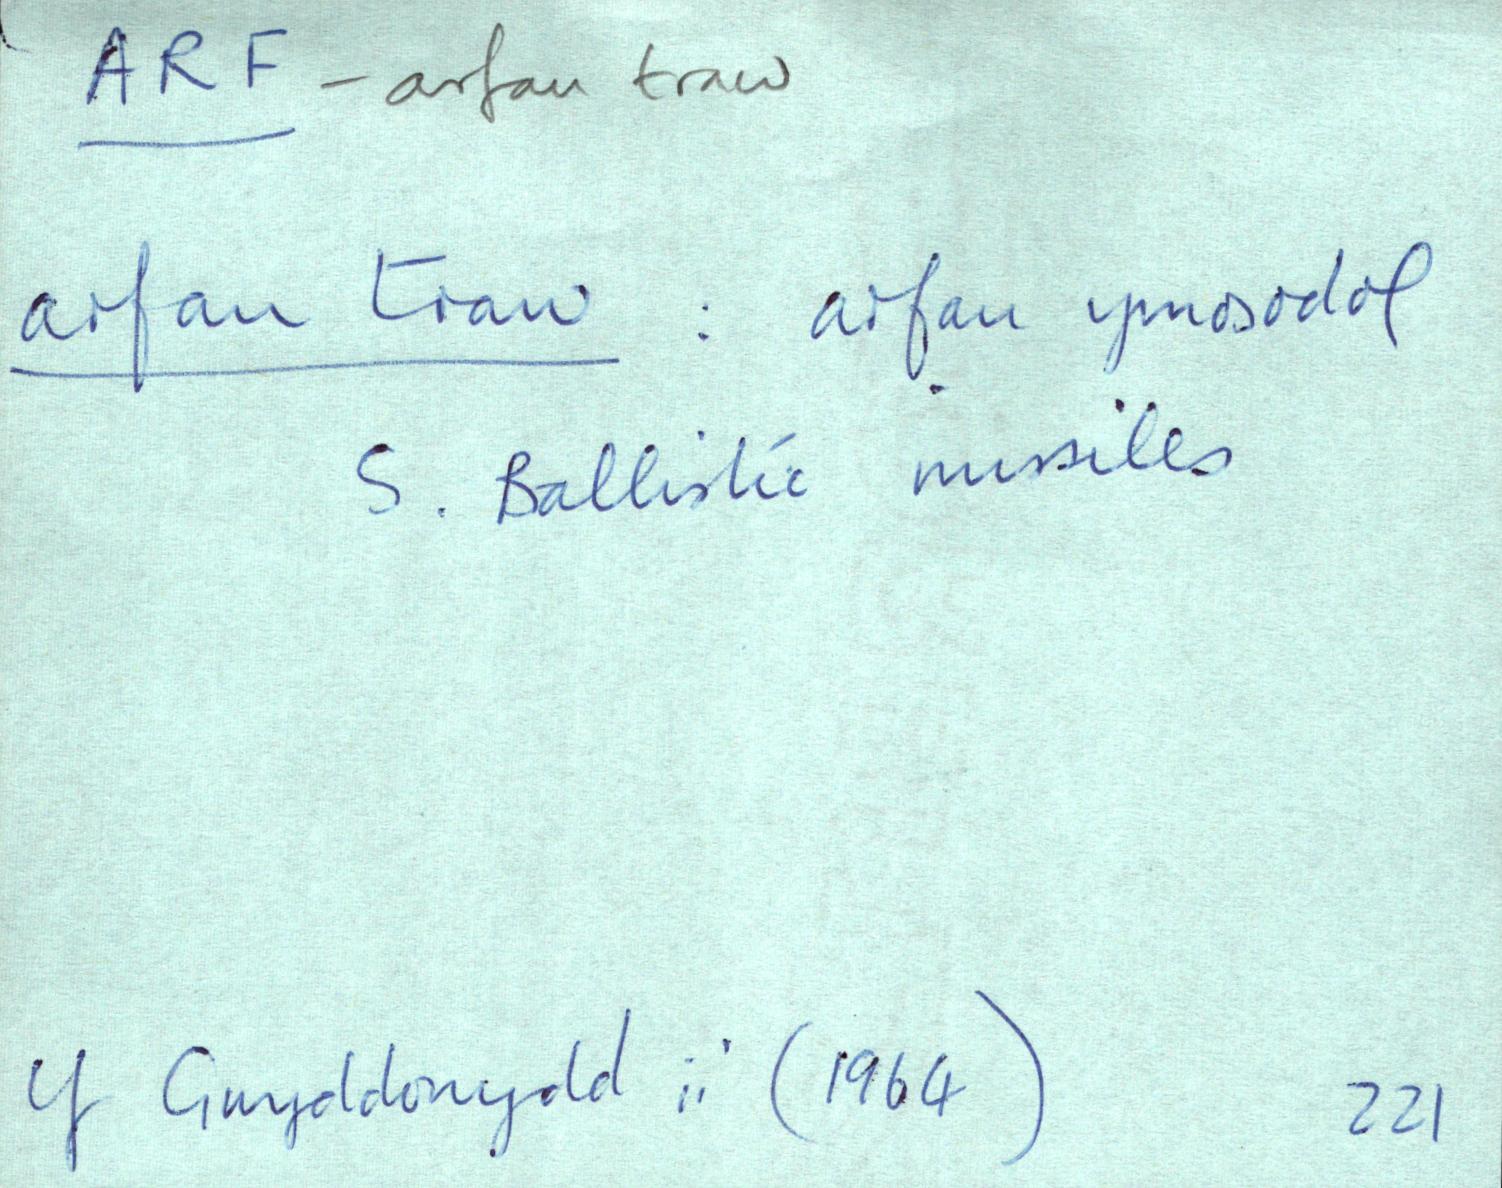 ARF - arfau traw
arfau traw : arfau ymosodol
S. Ballistic missiles
Y Gwyddonydd ii (1964) 221